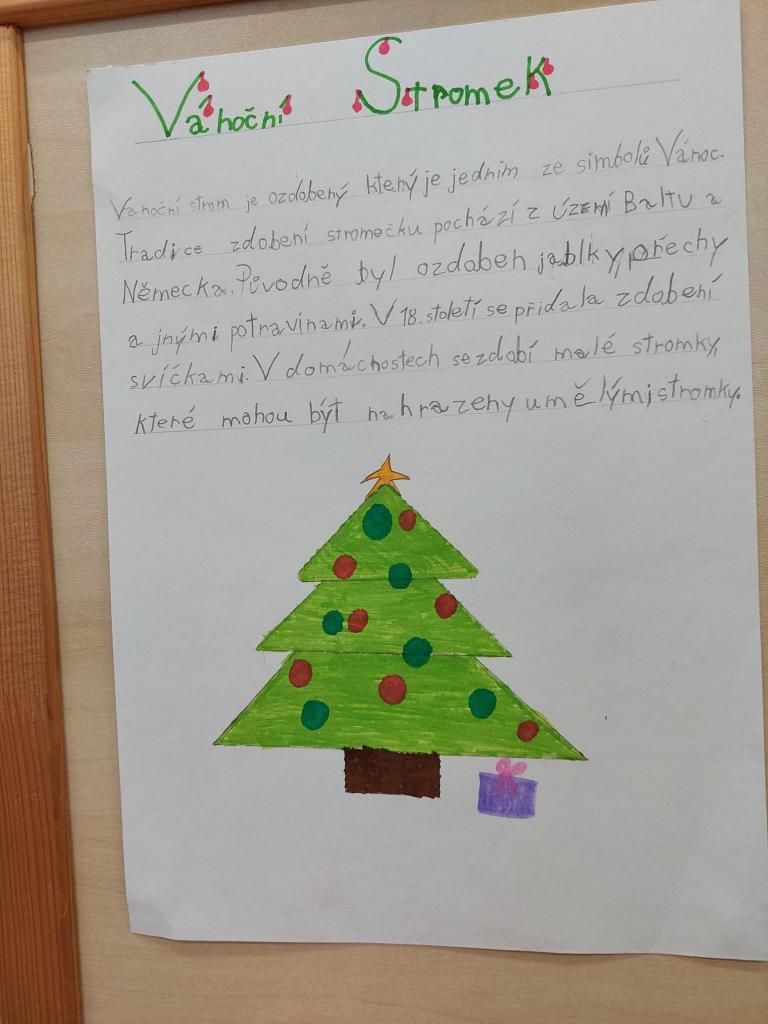 Vánoční Stromek
Vanoční strom je ozdobený který je jedním ze simbolů Vánoc.
Tradice zdobení stromečku pochází z území Baltu a
Německa. Původně byl ozdoben jablky, ořechy
a jnými potravinami. V 18. století se přidala zdobení
svíčkami. V domáchostech se zdobí malé stromky,
které mohou být nahrazeny umělými stromky.